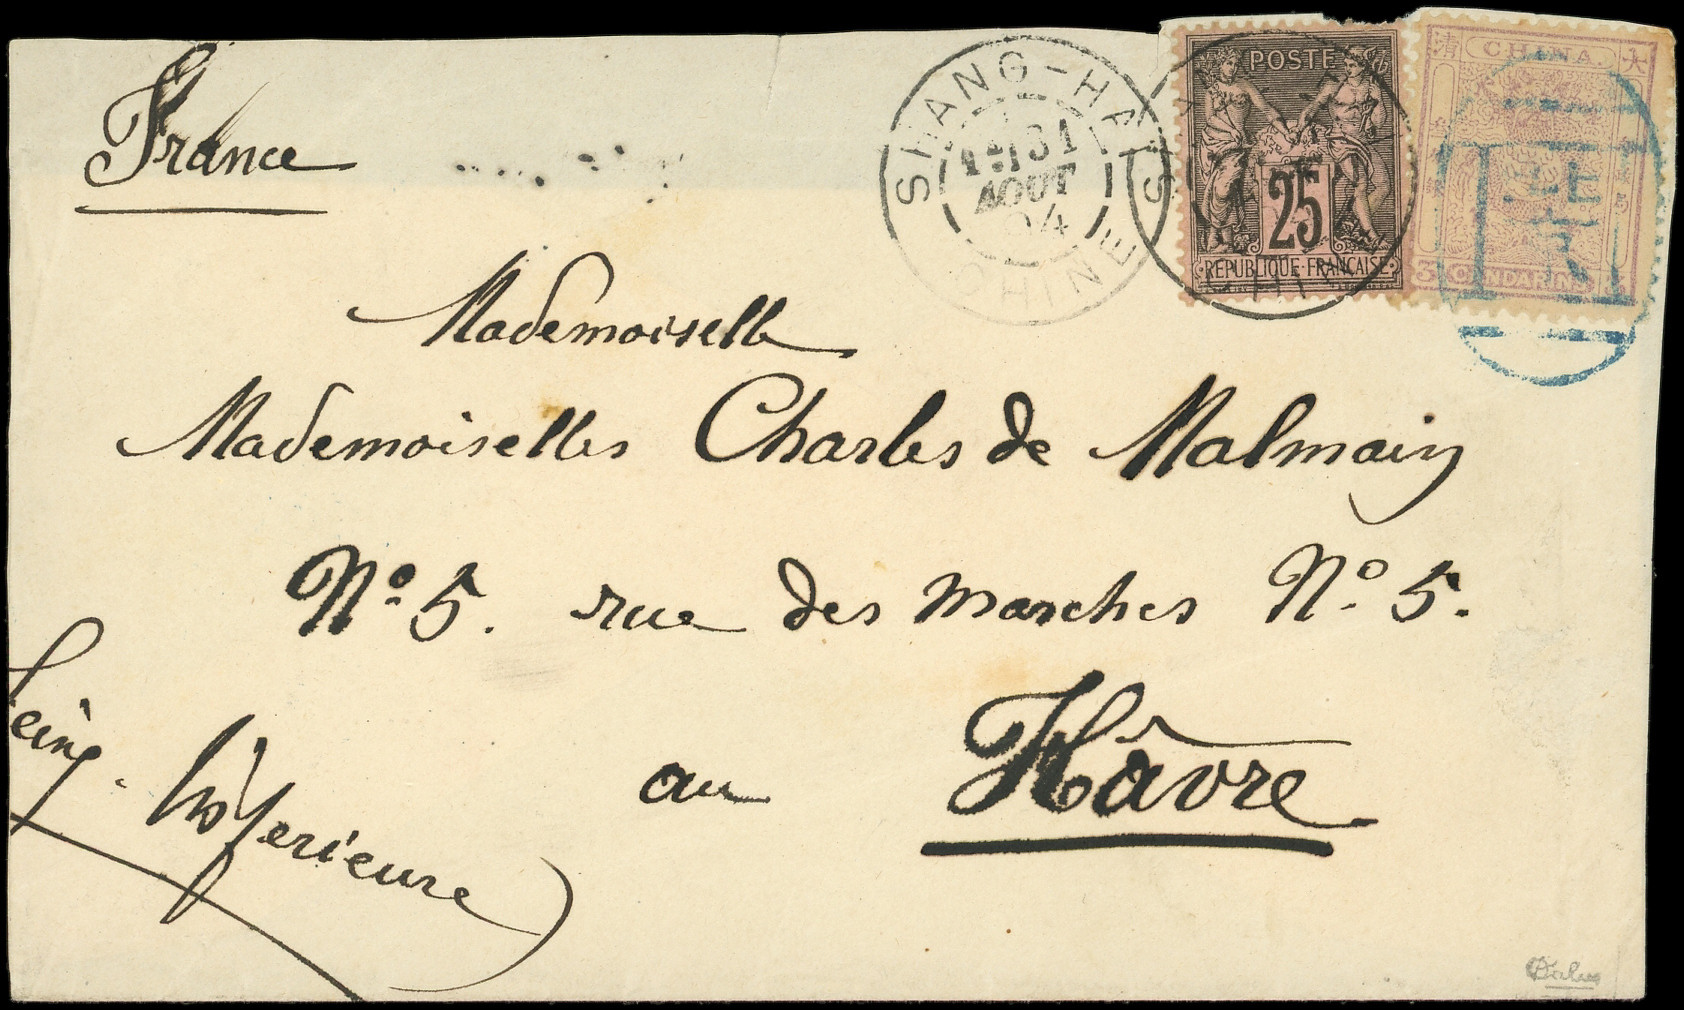 France
SHANG-HAI
31
AOUT
94
CHINE
POSTE
25
REPUBLIQUE FRANÇAISE
大
清
CHINA
3 CANDARINS
Mademoiselle
Mademoiselles Charles de Malmain
No. 5. rue des marches No. 5.
au Hâvre
Seine. Inferieure)